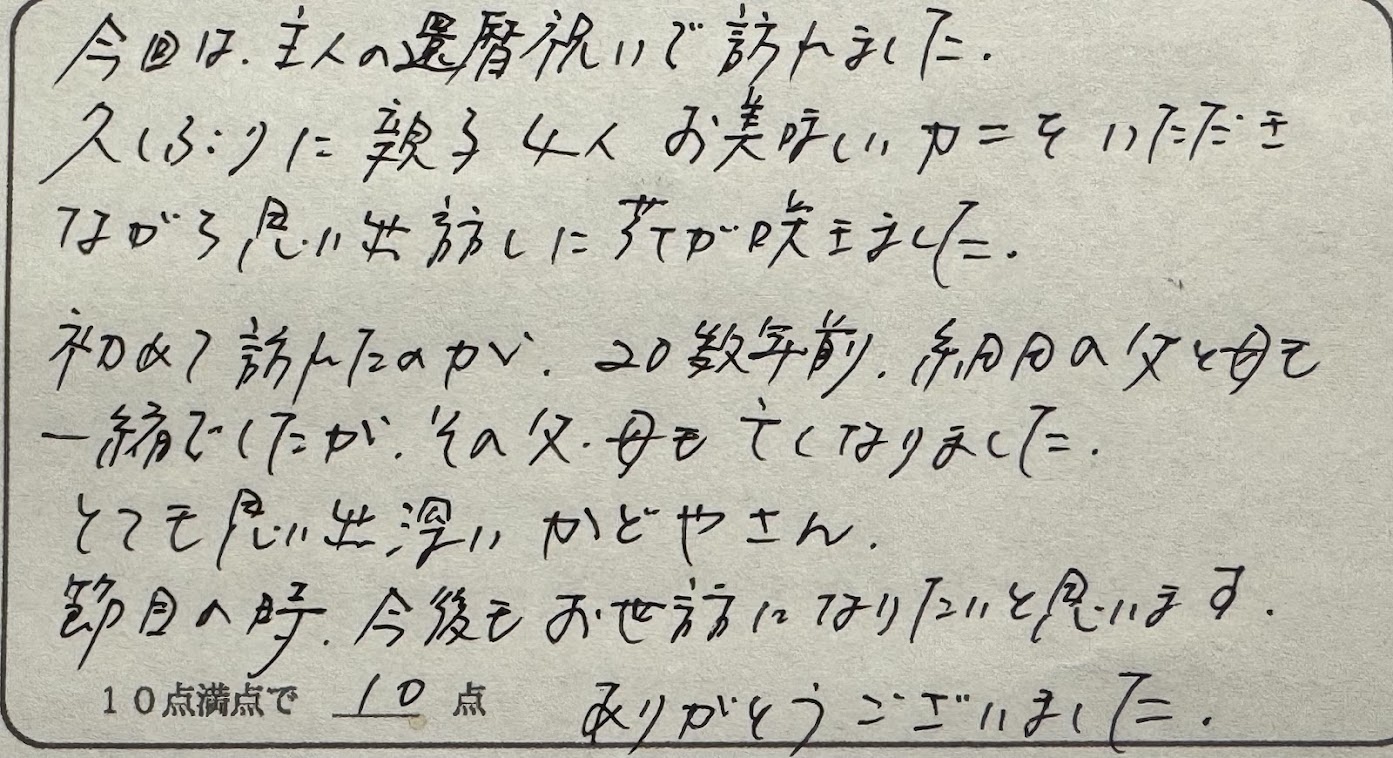 今回は、主人の還暦祝いで訪れました。
久しぶりに親子4人お美味しいカニをいただき
ながら思い出話しに花が咲きました。
初めて訪れたのが、20数年前、結納の父と母も
一緒でしたが、その父・母も亡くなりました。
とても思い出深いかどやさん。
節目の時、今後もお世話になりたいと思います。
10点満点で 10 点 ありがとうございました。